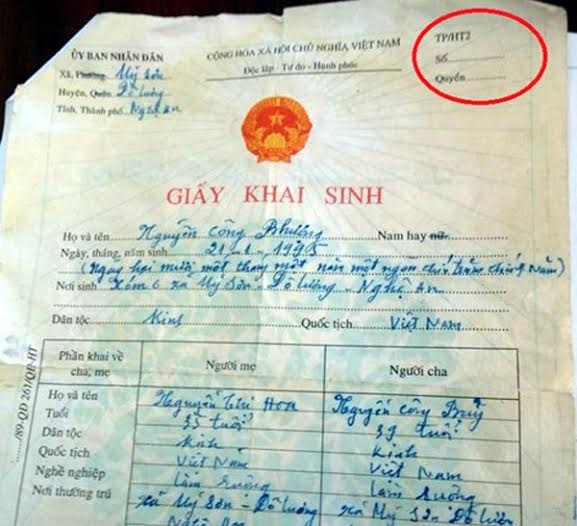 ỦY BAN NHÂN DÂN
Xã, Phường Mỹ Sơn
Huyện, Quận Đô Lương
Tỉnh, Thành phố Nghệ An
CỘNG HÒA XÃ HỘI CHỦ NGHĨA VIỆT NAM
Độc lập - Tự do - Hạnh phúc
TP/HT2
Số
Quyển
GIẤY KHAI SINH
Họ và tên Nguyễn Công Phượng Nam hay nữ
Ngày, tháng, năm sinh 21-1-1995
(Ngày hai mươi một tháng một năm một ngàn chín trăm chín năm)
Nơi sinh Xóm 6 xã Mỹ Sơn - Đô Lương - Nghệ An
Dân tộc Kinh Quốc tịch Việt Nam
Phần khai về cha, mẹ Người mẹ Người cha
Họ và tên Nguyễn Thị Hoa Nguyễn Công Bảy
Tuổi 35 tuổi 39 tuổi
Dân tộc Kinh Kinh
Quốc tịch Việt Nam Việt Nam
Nghề nghiệp Làm ruộng Làm ruộng
Nơi thường trú xã Mỹ Sơn - Đô Lương xã Mỹ Sơn - Đô Lương
Nghệ An
/89-QĐ 261/QĐ-HT